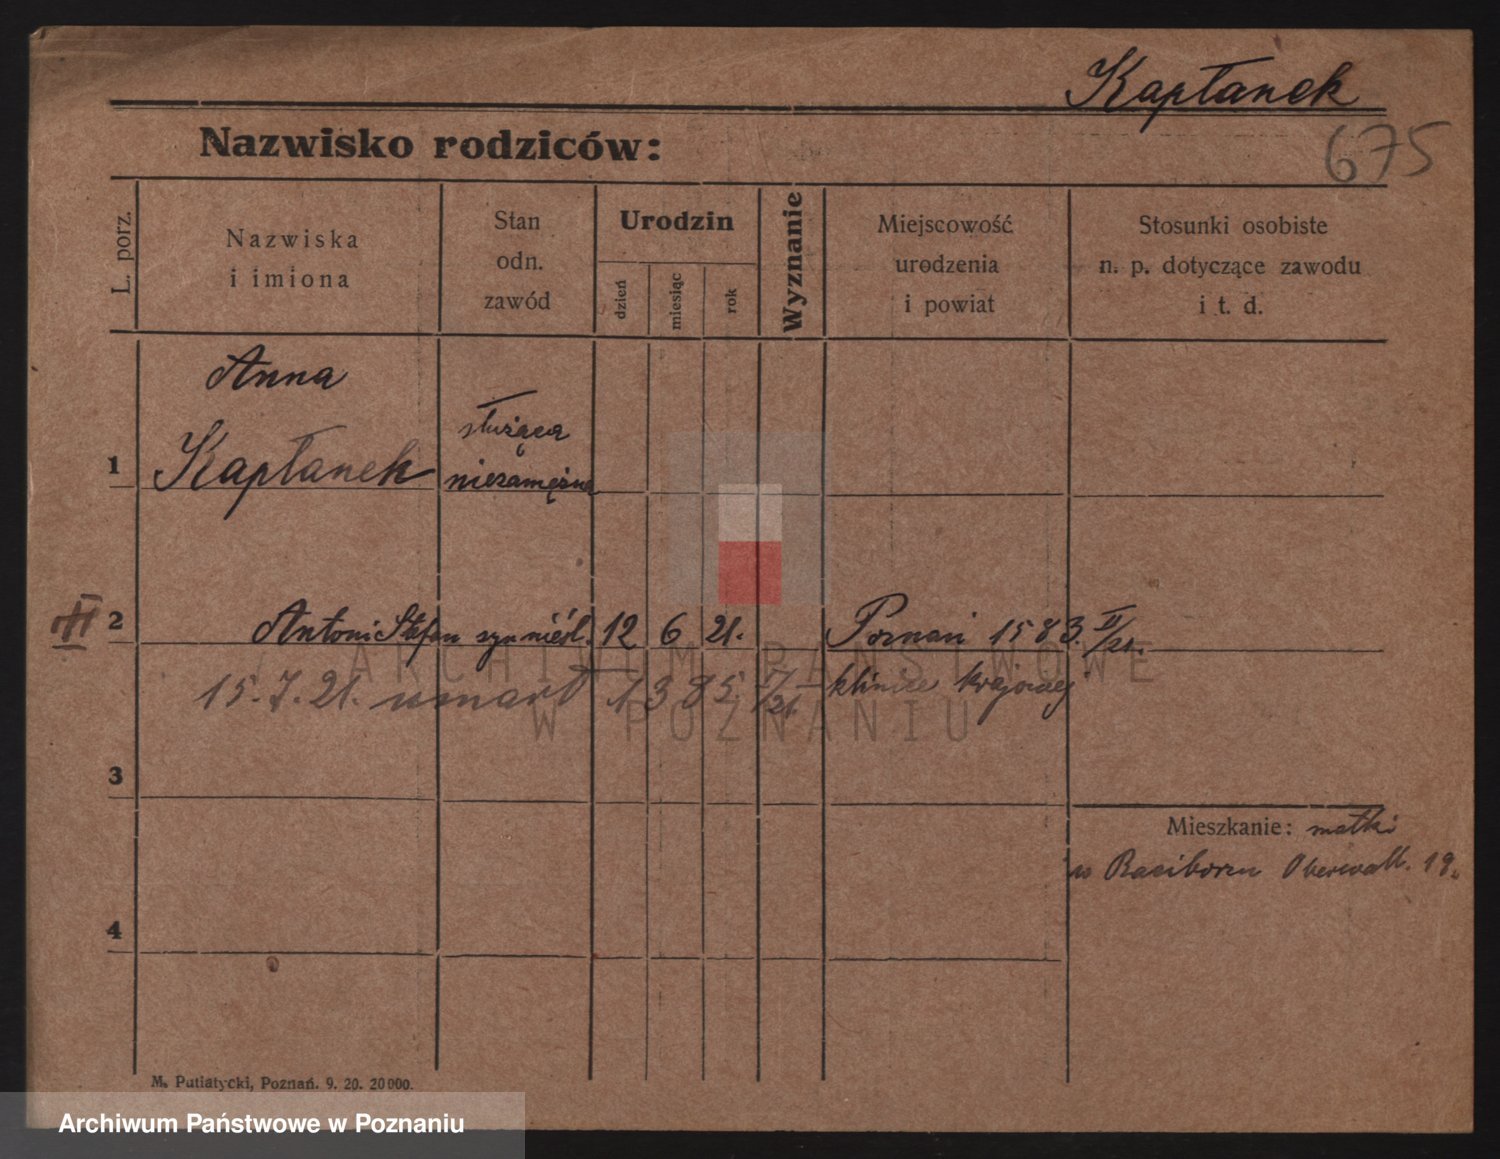 Kapłanek
675
Nazwisko rodziców:
L. porz.
Nazwiska
i imiona
Stan
odn.
zawód
Urodzin
dzień
miesiąc
rok
Wyznanie
Miejscowość
urodzenia
i powiat
Stosunki osobiste
n. p. dotyczące zawodu
i t. d.
Anna
służąca
1 Kapłanek niezamężna
II 2 Antoni Stefan syn nieśl. 12 6 21. Poznań 1583. II/21.
15.7.21. umarł 1385 klinice krajowej
ARCHIWUM PAŃSTWOWE
W POZNANIU
3
Mieszkanie: matki
w Raciborzu Oberwall. 19.
4
M. Putiatycki, Poznań. 9. 20. 20000.
Archiwum Państwowe w Poznaniu